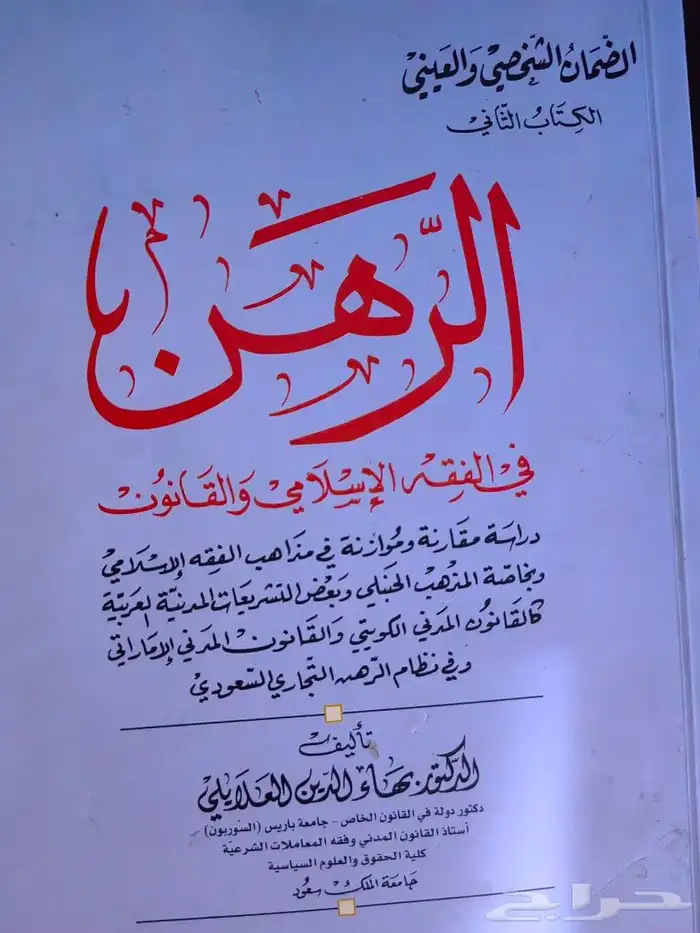 الضّمَانُ الشّخصِيّ وَالعَينيّ
الكِتَابُ الثّاني
الرّهَن
في الفِقهِ الإِسْلَامِي وَالقَانوُن
دراسَة مقَارنة ومُوازنَة في مذاهب الفِقه الإِسْلَاميّ
وبخاصّة المذهَبْ الحَنبلي وَبَعْض التشريعَات المدنيّة العَربيّة
كالقَانوُن المدَني الكويتي وَالقَانونُ المدَني الإماراتي
وفي نظام الرّهن التجاري السّعودي
تأليف
الدكتور بَهاء الدّين العَلايلي
دكتور دولة في القانون الخاص - جامعة باريس (السّوربون)
أستاذ القانون المدني وفقه المعاملات الشرعيّة
كلية الحقوق والعلوم السياسية
جَامعَة الملك سعُود
حراج